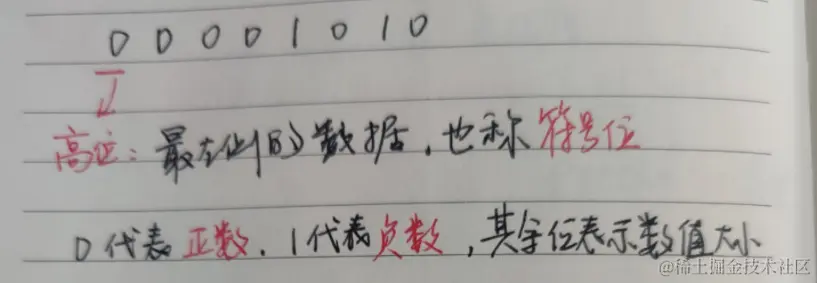 0 0 0 0 1 0 1 0
高位：最左侧的数据，也称符号位
0代表正数，1代表负数，其余位表示数值大小
@稀土掘金技术社区